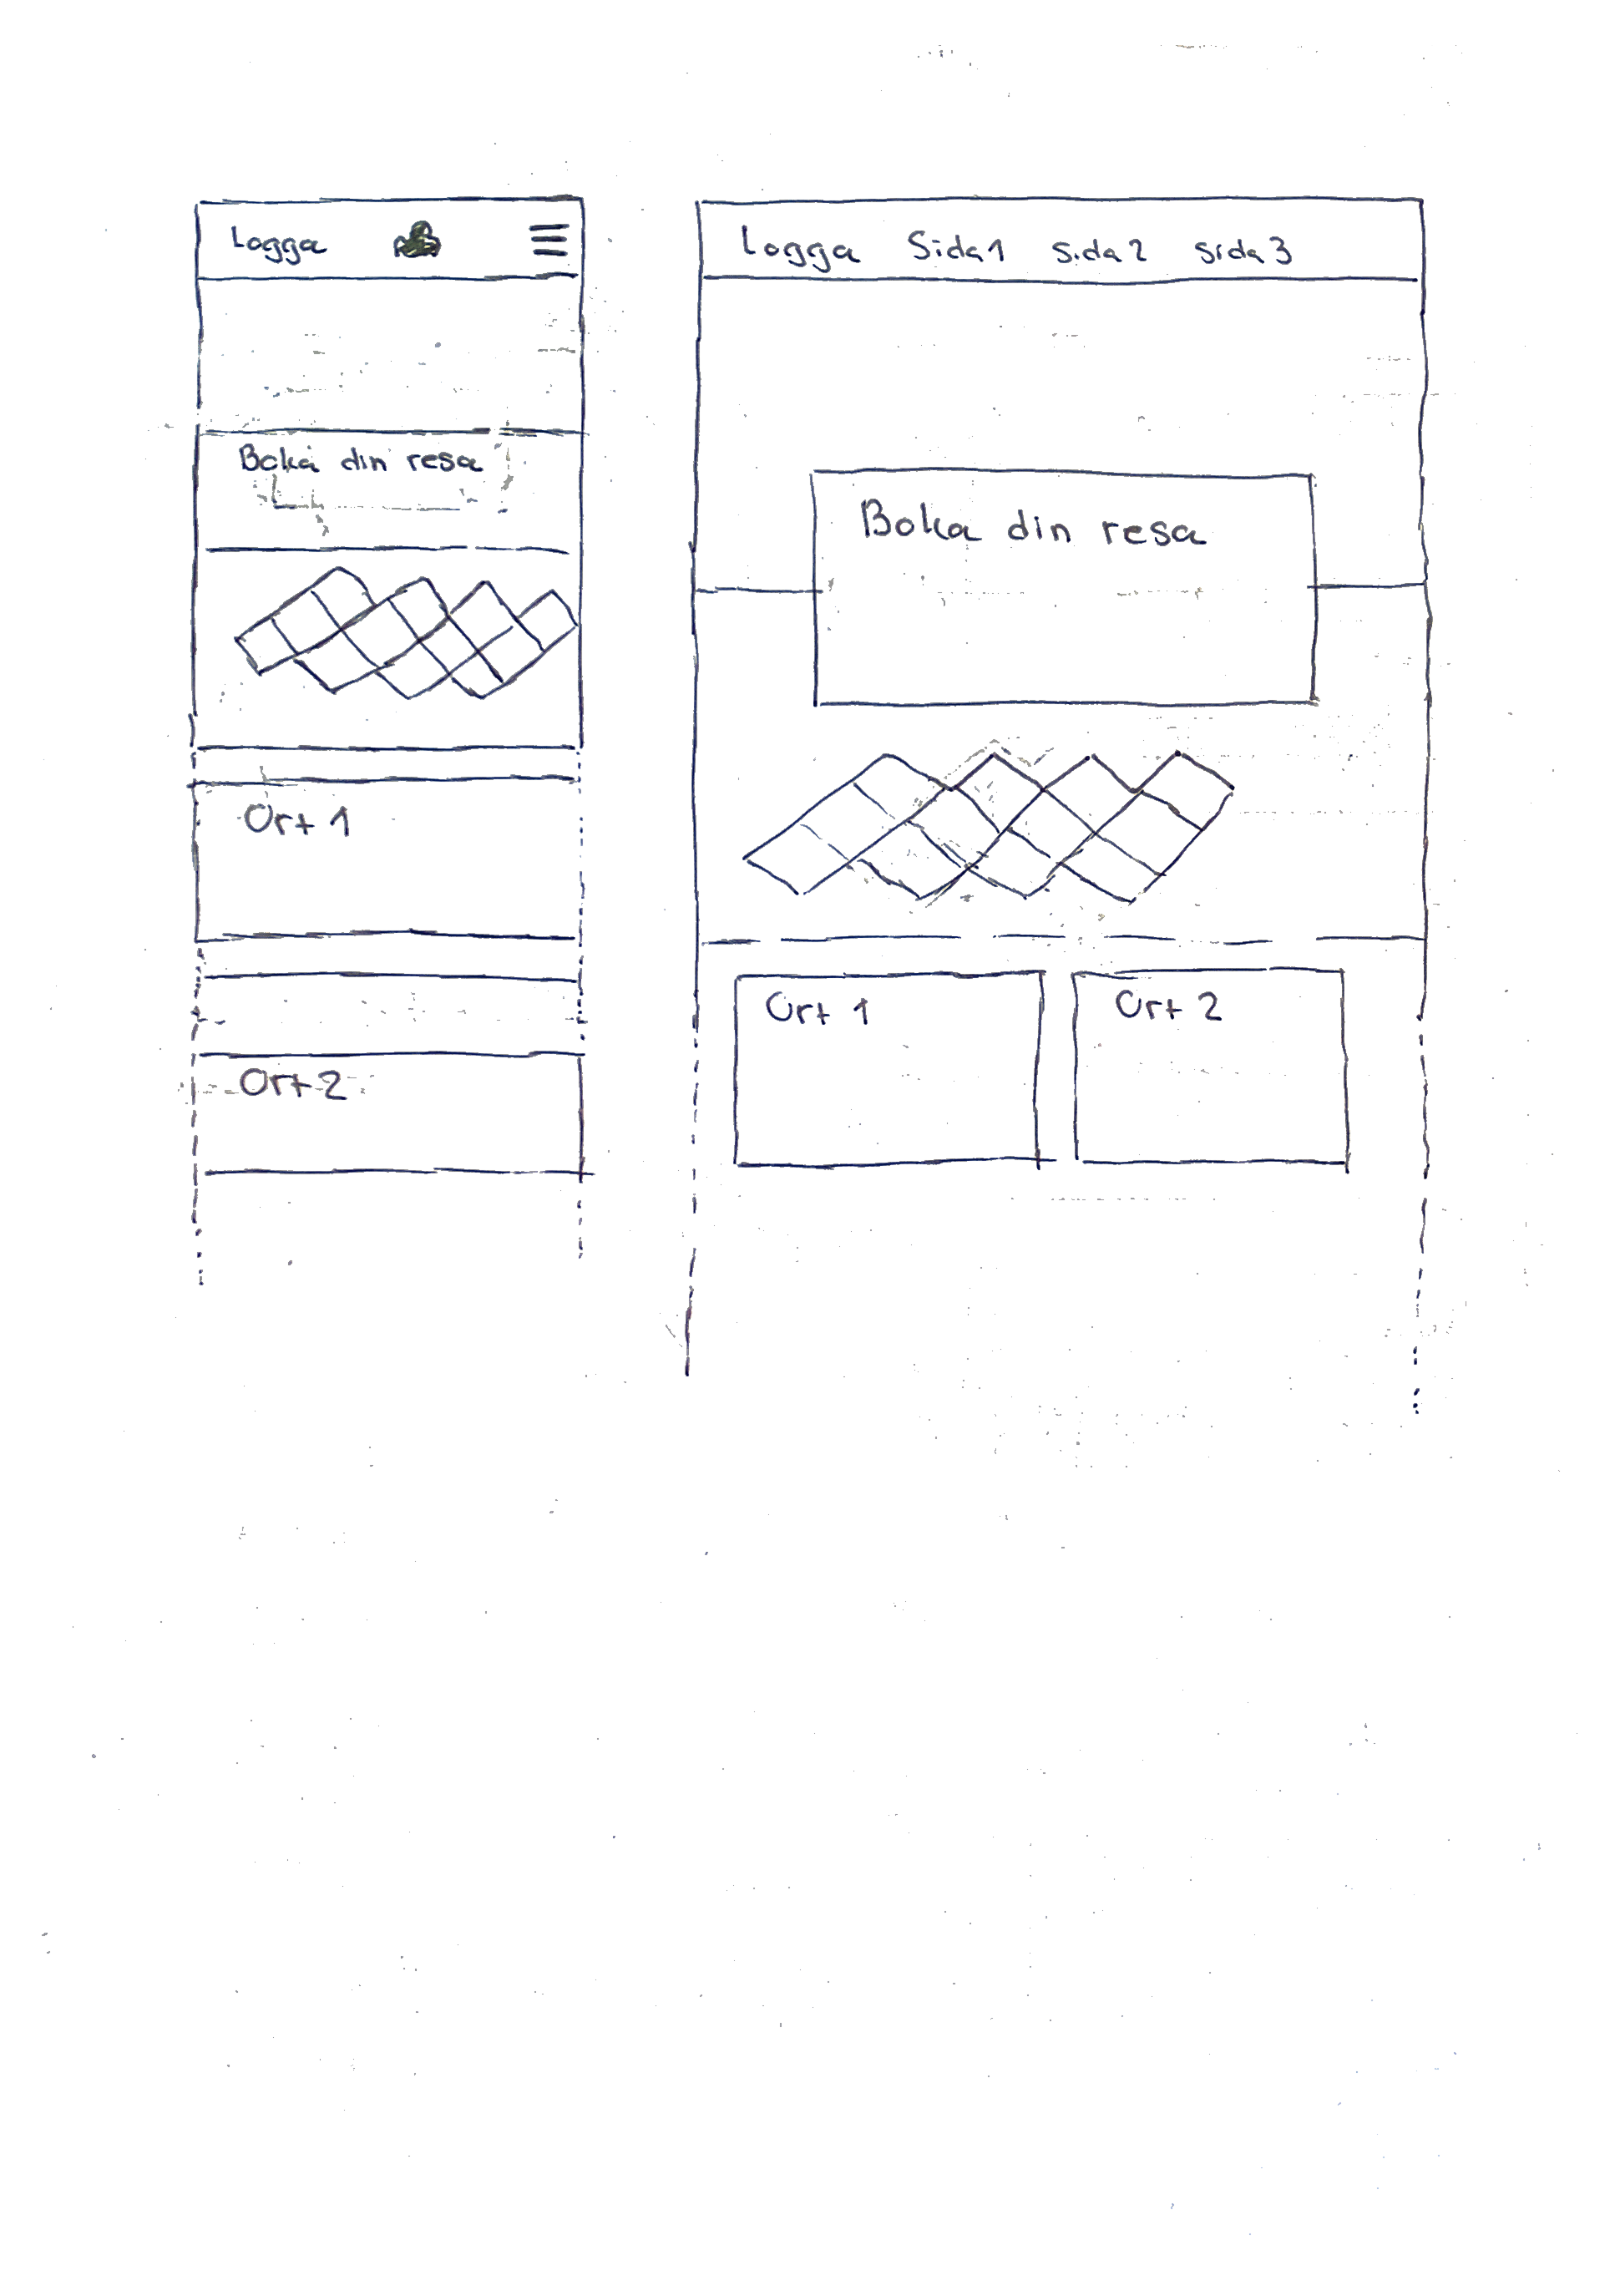 Logga
Boka din resa
Ort 1
Ort 2
Logga Sida 1 Sida 2 Sida 3
Boka din resa
Ort 1 Ort 2